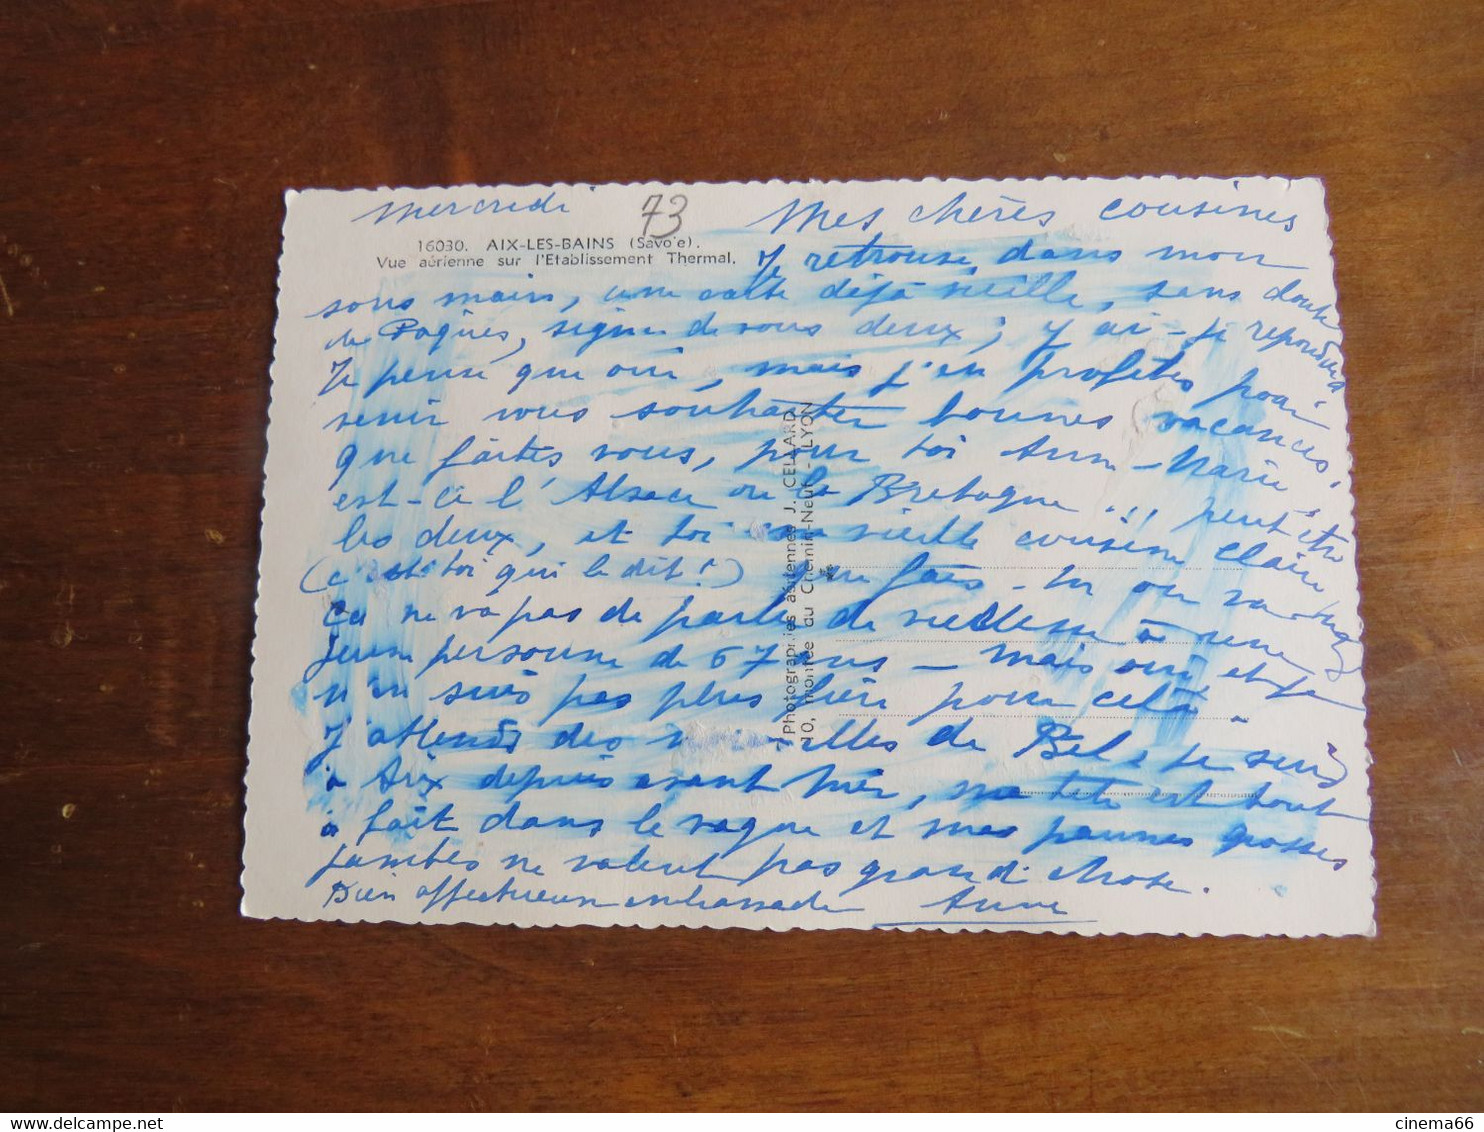 mercredi 73 Mes chères cousines
16030. AIX-LES-BAINS (Savoie).
Vue aérienne sur l'Etablissement Thermal.
Je retrouve dans mon
sous main, une carte déjà vieille, sans doute
de Pâques, signée de vous deux; y ai-je répondu
Je pense que oui, mais j'en profites pour
venir vous souhaiter bonnes vacances,
que faites vous, pour toi Anne-Marie
est-ce l'Alsace ou la Bretagne... peut être
les deux, et toi ma vieille cousine Claire
(c'est toi qui le dit!) que fais-tu ou vas-tu
ça ne va pas de parler de vieillesse à une
jeune personne de 67 ans - mais oui et je
n'en suis pas plus fière pour celà.
J'attends des nouvelles de Bel e je suis
à Aix depuis avant hier, ma tête est tout
à fait dans le vague et mes pauvres grosses
jambes ne valent pas grand chose.
Bien affectueuse embrassade Anne
Photographies aériennes J. CELLARD
10, montée du Chemin-Neuf - LYON
cinema66